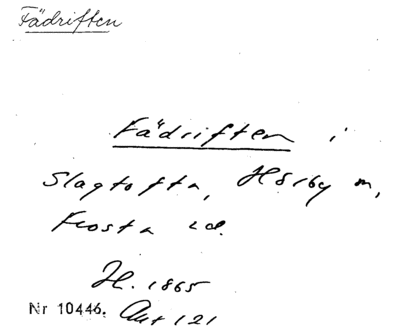 Fädriften
Fädriften i
Slagtofta, Hörby m,
Frosta hd.
H. 1865
Nr 10446. Akt 121